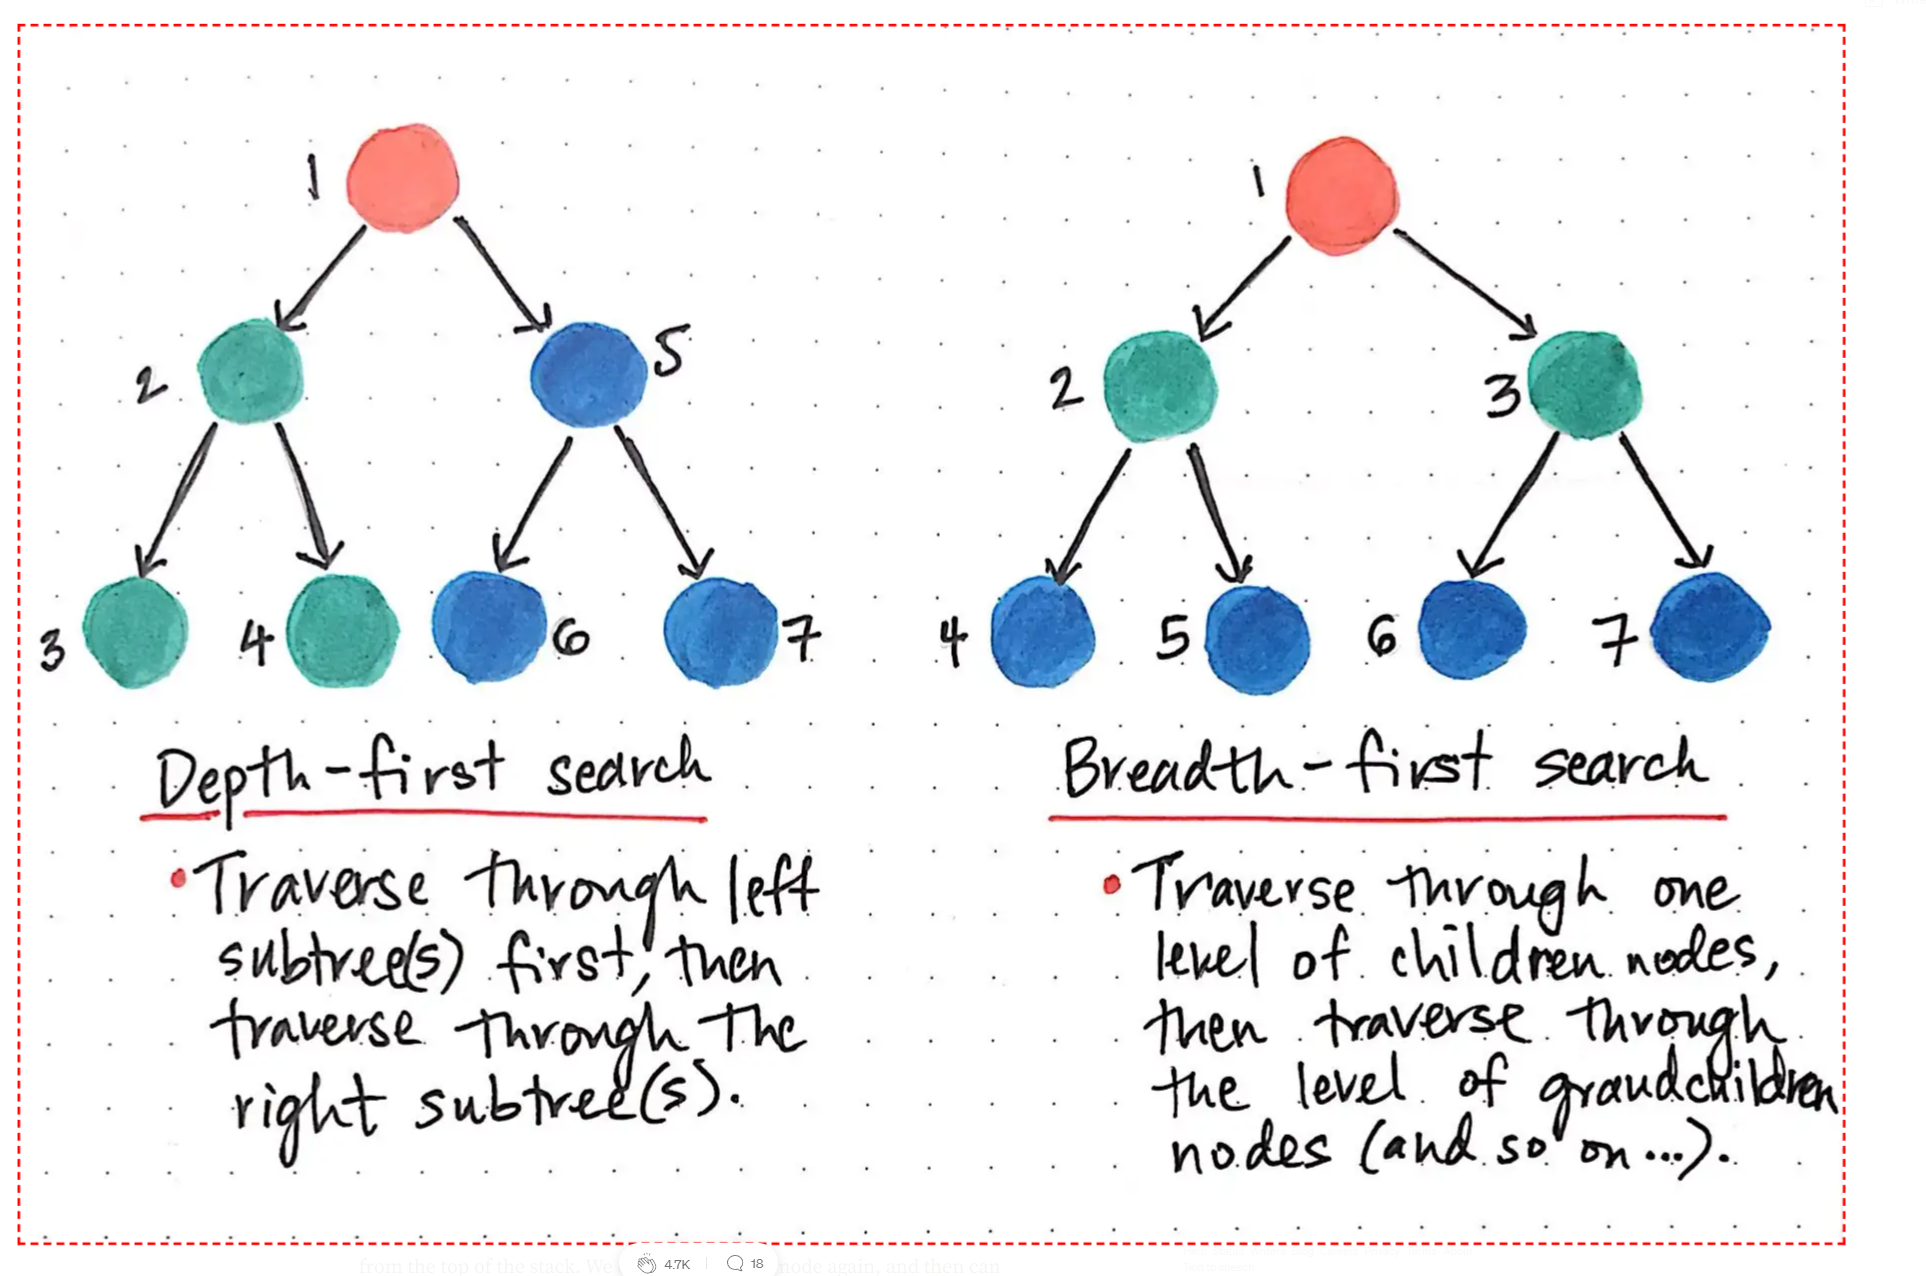 1
1
2
5
2
3
3
4
6
7
4
5
6
7
Depth-first search
• Traverse through left
subtree(s) first, then
traverse through the
right subtree(s).
Breadth-first search
• Traverse through one
level of children nodes,
then traverse through
the level of grandchildren
nodes (and so on...).
from the top of the stack. We
4.7K
18
node again, and then can